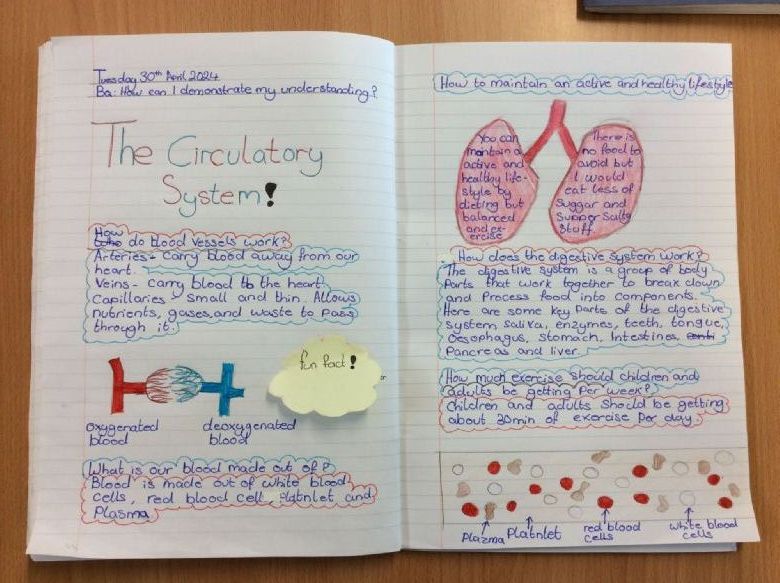 Tuesday 30th April 2024
BQ: How can I demonstrate my understanding?
The Circulatory
System!
How
do blood vessels work?
Arteries - Carry blood away from our
heart.
Veins - Carry blood to the heart.
Capillaries - Small and thin. Allows
nutrients, gases, and waste to pass
through it.
fun fact!
oxygenated
blood
deoxygenated
blood
What is our blood made out of?
Blood is made out of white blood
cells, red blood cell, Platnlet and
Plasma
How to maintain an active and healthy lifestyle
You can
maintain a
active and
healthy life-
style by
dieting but
balanced
and ex-
ercise
There is
no food to
avoid but
I would
eat less of
suggar and
supper salty
stuff.
How does the digestive system work?
The digestive system is a group of body
Parts that work together to break down
and Process food into components.
Here are some key parts of the digestive
system saliva, enzymes, teeth, tongue,
Oesophagus, stomach, Intestines,
Pancreas and liver.
How much exercise should children and
adults be getting Per week?
Children and adults should be getting
about 30min of exercise Per day.
Plazma
Platnlet
red blood
cells
white blood
cells